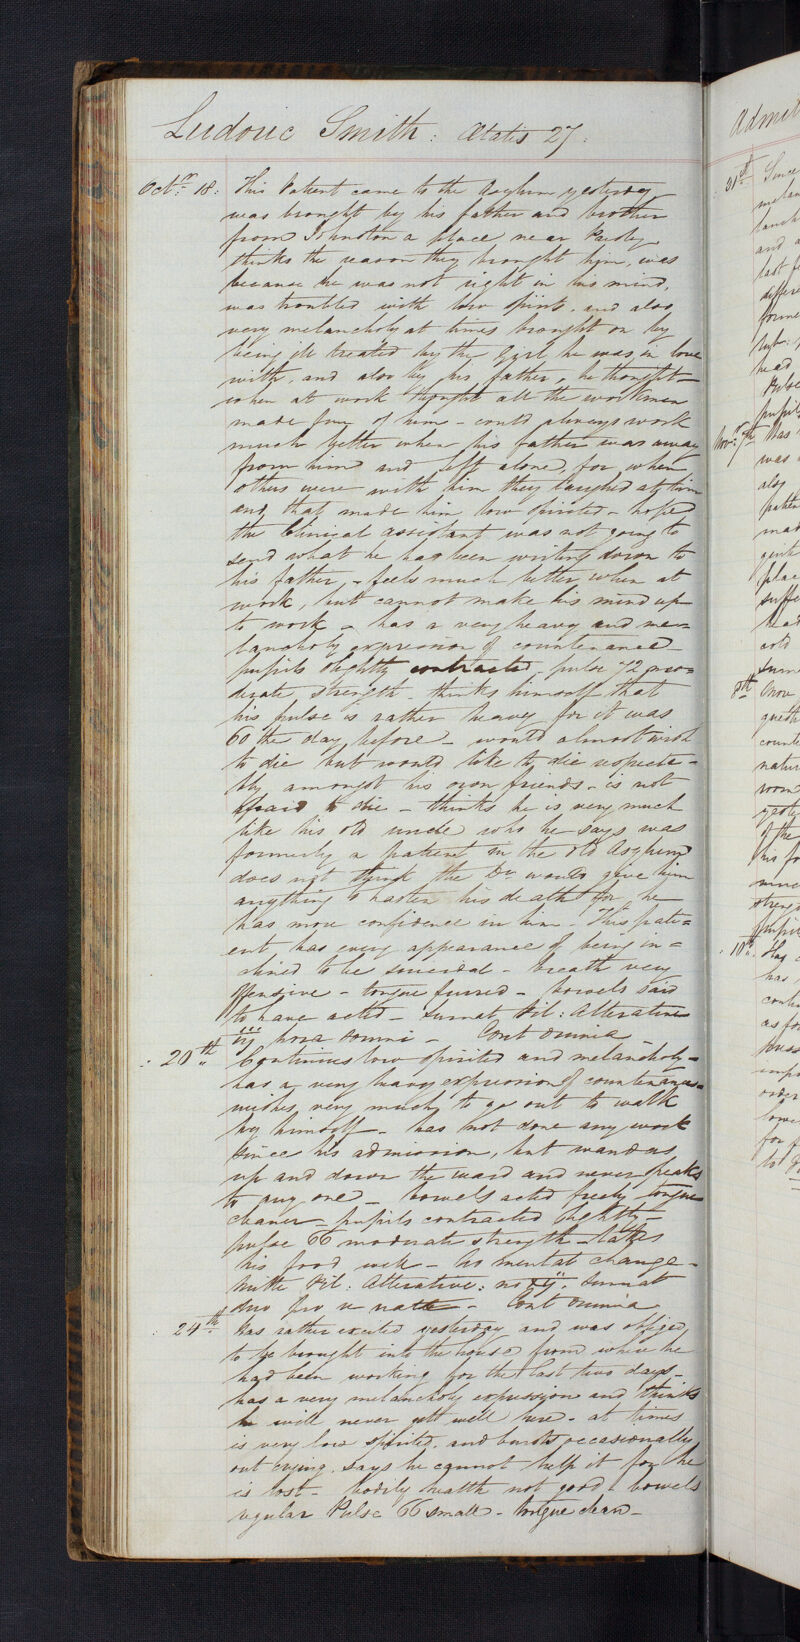 Ludovic Smith: Ætatis 27.
Octr. 18: This Patient came to the Asylum yesterday
was brought by his father and brother
from Johnston a place near Paisley
thinks the reason they brought him, was
because he was not right in his mind,
was troubled with low spirits, and also
very melancholy at times brought on by
being ill treated by the Gyrl he was in love
with, and also by his father, he thought
when at work thought all the workmen
made fun of him - could always work
much better when his father was away
from him and left alone, for when
others were with him they laughed at him
and that made him low spirited - hoped
the Clinical assistant was not going to
send what he has been writing down to
his father, - feels much better when at
work, but cannot make his mind up
to work - has a very heavy and me=
lancholy expression of countenance
pupils slightly contracted, pulse 72 mo=
derate strength - thinks himself that
his pulse is rather heavy for it was
60 the day before - would almost wish
to die but would like to die respecta=
bly amongst his own friends - is not
afraid to die - thinks he is very much
like his old uncle who he says was
formerly a patient in the old Asylum
does not think the Dr would give him
anything to hasten his death for he
has more confidence in him - This pati=
ent has every appearance of being in=
clined to be suicidal - breath very
offensive - tongue furred - bowels said
to have acted - Sumat Pil: Alterative
iij hora somni - Cont omnia -
20th Continues low spirited and melancholy -
has a very heavy expression of countenance
wishes very much to go out to walk
by himself - has not done any work
since his admission, but wanders
up and down the ward and never speaks
to any one - bowels acted freely tongue
cleaner - pupils contracted slightly -
pulse 66 moderate strength - takes
his food well - No mental change -
Mitte Pil: Alterative: no xij. Sumat
duo pro re nata - Cont omnia
24th Was rather excited yesterday and was obliged
to be brought into the house from where he
had been working for the last two days -
has a very melancholy expression and thinks
he will never gett well here - at times
is very low spirited, and bursts occasionally
out crying, says he cannot help it for he
is lost - bodily health not good - bowels
regular Pulse 66 small - tongue clean -
Admit
31st Since
and a
last
differe
forme
head
Pulse
pupil
Novr. 7th Has
was
also
place
suffe
head
cold
8th
quest
count
natur
room
of the
his fo
10th Has
has
as fo
order
for